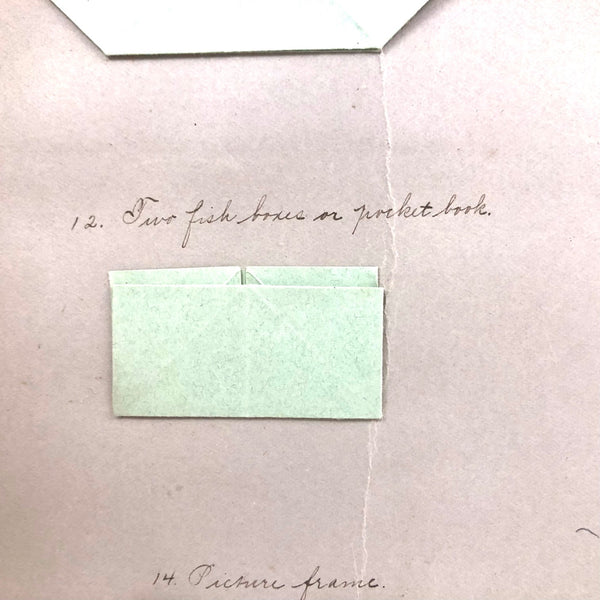 12. Two fish boxes or pocket book.
14. Picture frame.